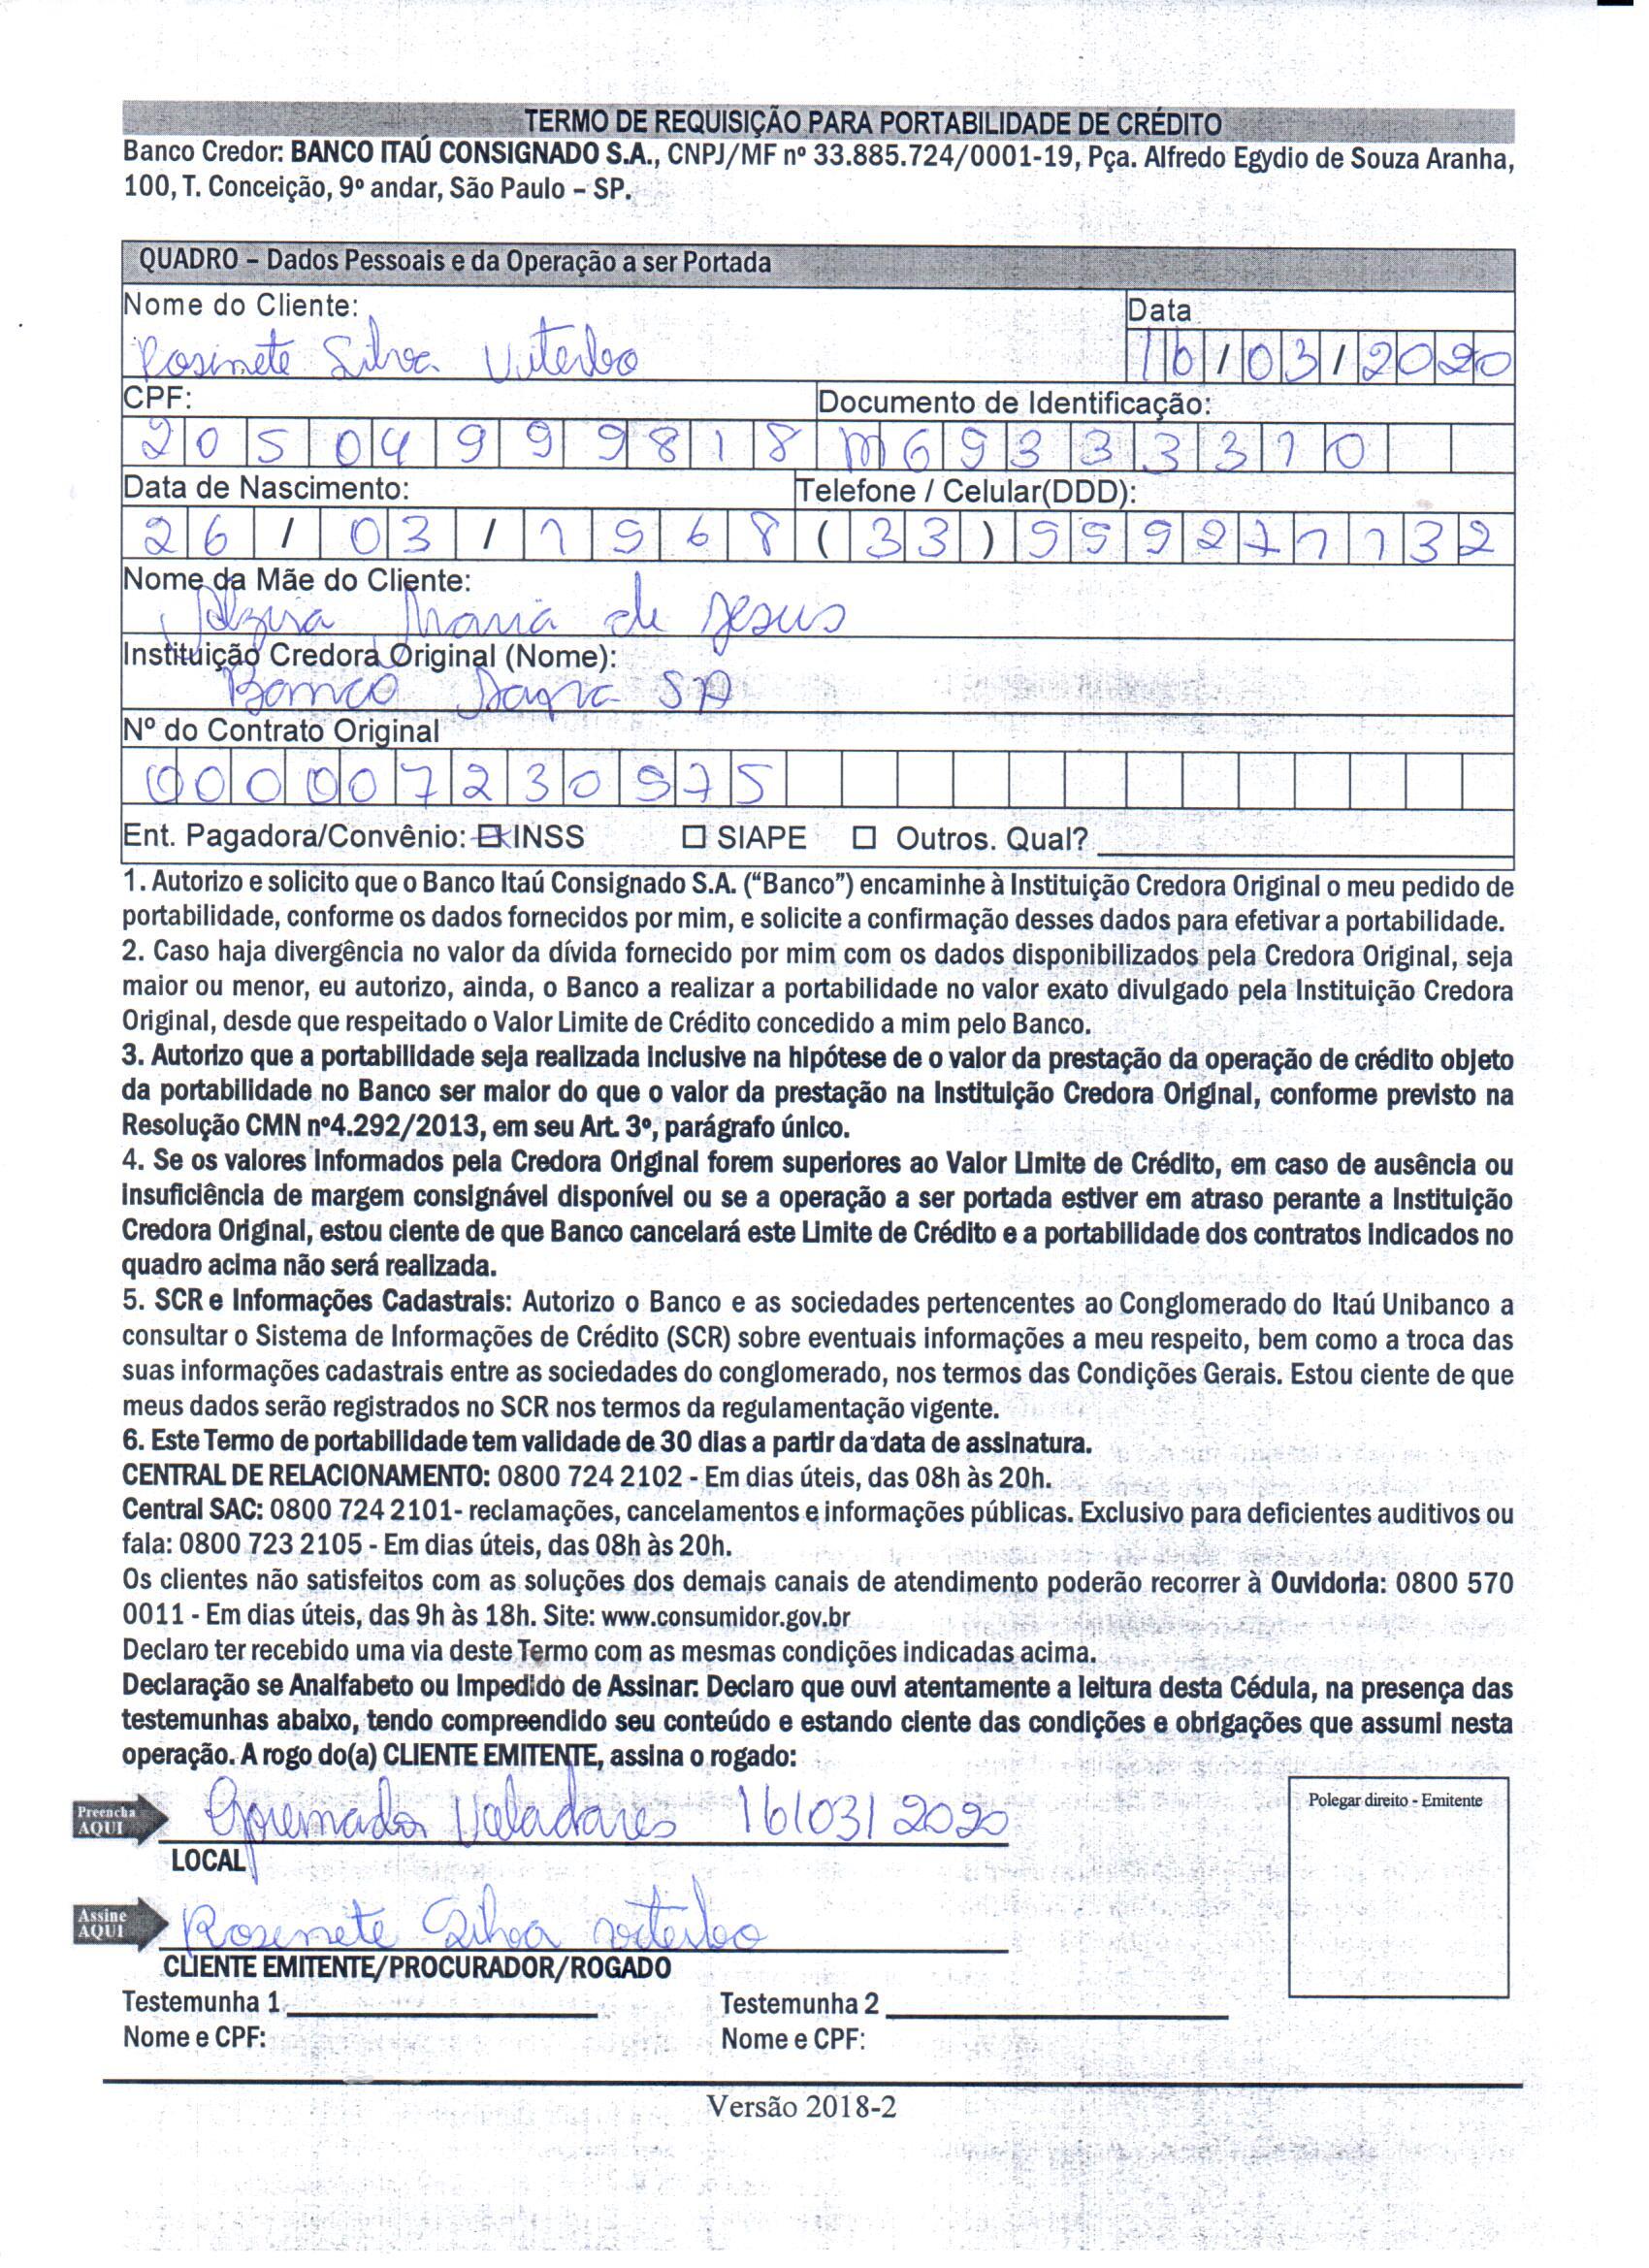 TERMO DE REQUISIÇÃO PARA PORTABILIDADE DE CRÉDITO
Banco Credor: BANCO ITAÚ CONSIGNADO S.A., CNPJ/MF nº 33.885.724/0001-19, Pça. Alfredo Egydio de Souza Aranha,
100, T. Conceição, 9º andar, São Paulo – SP.
QUADRO – Dados Pessoais e da Operação a ser Portada
Nome do Cliente: Data
Rosinete Silva Viterbo 16/03/2020
CPF: Documento de Identificação:
20504999818 M69333310
Data de Nascimento: Telefone / Celular(DDD):
26/03/1968 (33)999271132
Nome da Mãe do Cliente:
Alzira Maria de Jesus
Instituição Credora Original (Nome):
Banco Safra SA
Nº do Contrato Original
000007230975
Ent. Pagadora/Convênio: ☒ INSS ☐ SIAPE ☐ Outros. Qual?
1. Autorizo e solicito que o Banco Itaú Consignado S.A. (“Banco”) encaminhe à Instituição Credora Original o meu pedido de
portabilidade, conforme os dados fornecidos por mim, e solicite a confirmação desses dados para efetivar a portabilidade.
2. Caso haja divergência no valor da dívida fornecido por mim com os dados disponibilizados pela Credora Original, seja
maior ou menor, eu autorizo, ainda, o Banco a realizar a portabilidade no valor exato divulgado pela Instituição Credora
Original, desde que respeitado o Valor Limite de Crédito concedido a mim pelo Banco.
3. Autorizo que a portabilidade seja realizada inclusive na hipótese de o valor da prestação da operação de crédito objeto
da portabilidade no Banco ser maior do que o valor da prestação na Instituição Credora Original, conforme previsto na
Resolução CMN nº4.292/2013, em seu Art. 3º, parágrafo único.
4. Se os valores informados pela Credora Original forem superiores ao Valor Limite de Crédito, em caso de ausência ou
insuficiência de margem consignável disponível ou se a operação a ser portada estiver em atraso perante a Instituição
Credora Original, estou ciente de que Banco cancelará este Limite de Crédito e a portabilidade dos contratos indicados no
quadro acima não será realizada.
5. SCR e Informações Cadastrais: Autorizo o Banco e as sociedades pertencentes ao Conglomerado do Itaú Unibanco a
consultar o Sistema de Informações de Crédito (SCR) sobre eventuais informações a meu respeito, bem como a troca das
suas informações cadastrais entre as sociedades do conglomerado, nos termos das Condições Gerais. Estou ciente de que
meus dados serão registrados no SCR nos termos da regulamentação vigente.
6. Este Termo de portabilidade tem validade de 30 dias a partir da data de assinatura.
CENTRAL DE RELACIONAMENTO: 0800 724 2102 - Em dias úteis, das 08h às 20h.
Central SAC: 0800 724 2101- reclamações, cancelamentos e informações públicas. Exclusivo para deficientes auditivos ou
fala: 0800 723 2105 - Em dias úteis, das 08h às 20h.
Os clientes não satisfeitos com as soluções dos demais canais de atendimento poderão recorrer à Ouvidoria: 0800 570
0011 - Em dias úteis, das 9h às 18h. Site: www.consumidor.gov.br
Declaro ter recebido uma via deste Termo com as mesmas condições indicadas acima.
Declaração se Analfabeto ou Impedido de Assinar: Declaro que ouvi atentamente a leitura desta Cédula, na presença das
testemunhas abaixo, tendo compreendido seu conteúdo e estando ciente das condições e obrigações que assumi nesta
operação. A rogo do(a) CLIENTE EMITENTE, assina o rogado:
Preencha
AQUI
Governador Valadares 16/03/2020
LOCAL
Polegar direito - Emitente
Assine
AQUI
Rosinete Silva viterbo
CLIENTE EMITENTE/PROCURADOR/ROGADO
Testemunha 1 Testemunha 2
Nome e CPF: Nome e CPF:
Versão 2018-2